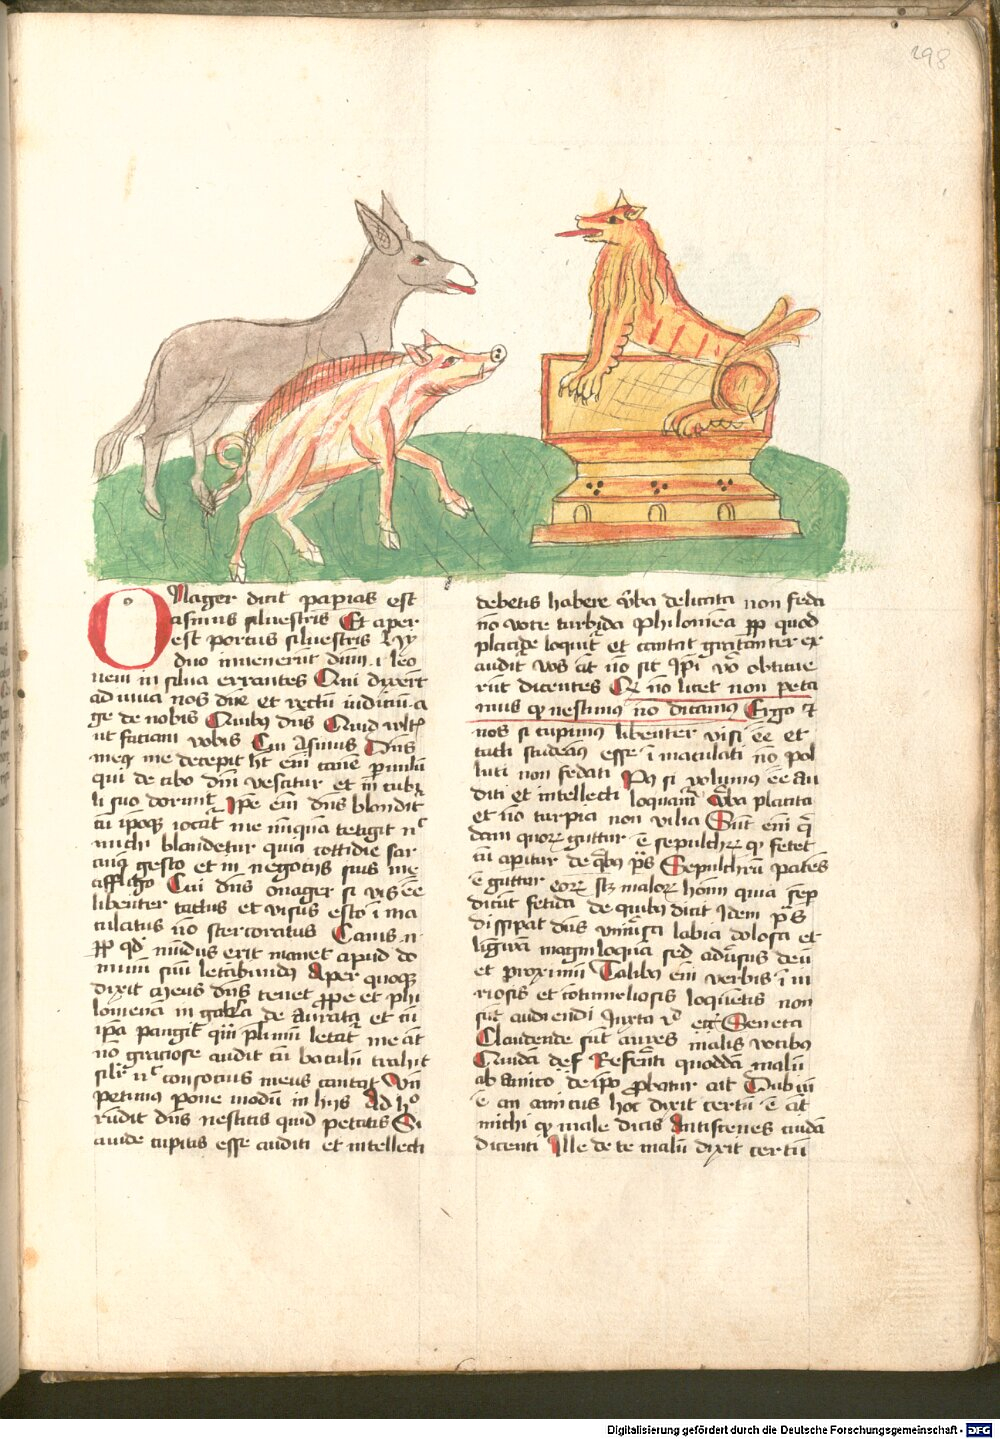 298
Onager dicit papias est
asinus siluestris Et aper
est porcus siluestris Hy
duo inuenerūt dūm .i. leo
nem in silua errantes Cui dixerūt
ad iuua nos dn̄e et rectū iudiciū a
ge de nobis Quibꝫ dn̄s Quid vultꝭ
ut faciam vobis Cui Asinus Dn̄s
meꝰ me decepit hꝫ em̄ canē
qui de cibo dn̄i vescitur et in cubi
li suo dormit Ipe em̄ dn̄s blandit̄
cū ipoqꝫ iocat̄ me nūquā tetigit nec
michi blandetur quia cottidie sar
cinas gesto et in negocijs suis me
affligo Cui dn̄s onager si vis eē
libenter tactus et visus esto ī ma
culatus nō stercoratus Canis .n.
ꝓp qd̄ mūdus erit manet apud do
minū suū letabundꝰ Aper quoqꝫ
dixit meus dn̄s tenet ꝓpe et phi
lomenā in gabia de aurata et cū
ipa pangit letat̄ me āt
nō graciose audit cū baculū trahit
silr̄ nec consocius meus cantat Vn̄
petimus pone modū in hijs Ad hoc
rūdit dn̄s nescitis quid petatis Si
auide cupitis esse auditi et intellecti
debetis habere v̄ba delicata non feda
nō voce turbida Philomēa ꝓp quod
placide loquit̄ et cantat gratanter ex
audit vos āt nō sic Ipi vō obticue
rūt dicentes Qꝛ nō licet non peta
mus qꝫ nescimus nō dicamꝰ Ergo et
nos si cupimus libenter visi eē et
tacti studeamꝰ esse ī maculati nō pol
luti non fedati Pꝰ si volumus eē au
diti et intellecti loquam̄ v̄ba placita
et nō turpia non vilia Sūt em̄ q̄
dam quorꝫ guttur ē sepulchrꝫ qꝫ fetet
cū apitur de qͥbꝫ pˢ Sepulchrū patēs
ē guttur eorꝫ malorꝫ hoīm quia sēp
dicūt fetida de quibꝫ dicit Idem pˢ
disspat dn̄s vniūsa labia dolosa et
ligwā magniloquā sed aduˢsus deū
et proximū Talibꝫ em̄ verbis ī iu
riosis et cōtumeliosis loquētis non
sūt audiendi Iuxta Seneca
Claudende sūt aures malis vocibꝫ
Cuidā def Referēti quoddā malū
ab amico de ipō ꝓbatur ait Dubiū
ē an amicus hoc dixit certū ē āt
michi qꝫ male dicis Antistenes cuidā
dicenti Ille de te malū dixit certū
Digitalisierung gefördert durch die Deutsche Forschungsgemeinschaft - DFG